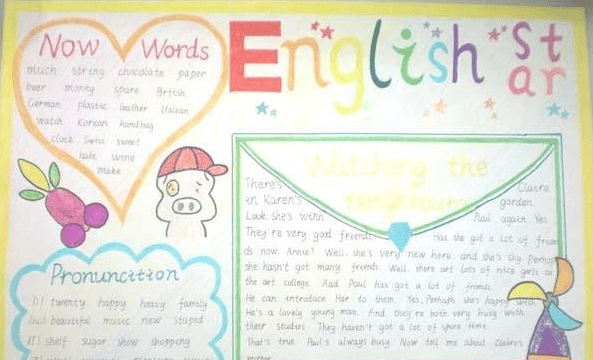 Now Words
much string chocolate paper
beer money spare British
German plastic leather Italian
watch Korean handbag
clock Swiss sweet
hate wine
make
English
St
ar
Watching the
neighbours
There's Claire
in Karen's garden.
Look, she's with Paul again. Yes.
They're very good friends. Has she got a lot of frien
ds now, Annie? Well, she's very new here, and she's shy. Perhap
she hasn't got many friends. Well, there are lots of nice girls at
the art college. And Paul has got a lot of friends.
He can introduce Her to them. Yes, Perhaps she's happy with
He's a lovely young man. And they're both very busy with
their studies. They haven't got a lot of spare time.
That's true. Paul's always busy. Now tell me about Claire's
mother.
Pronunciation
twenty happy heavy family
beautiful music new stupid
shelf sugar show shopping